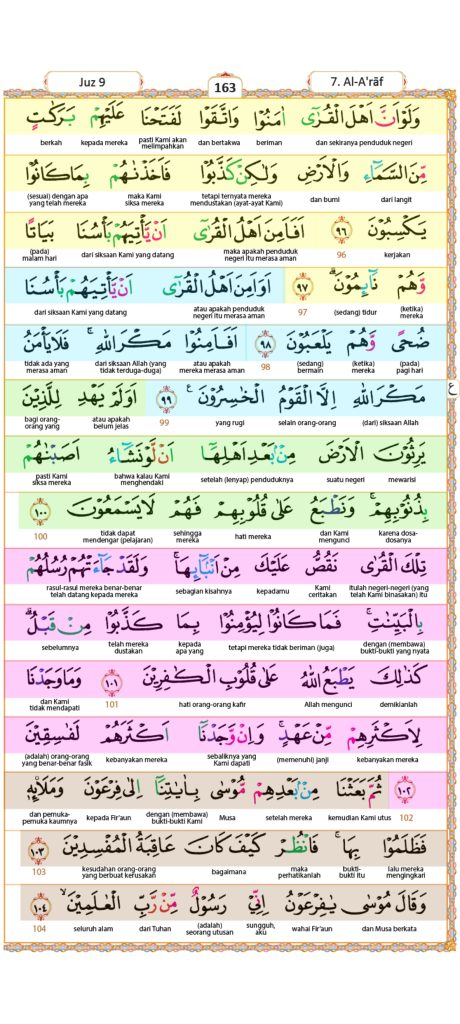 Juz 9
163
7. Al-A'rāf
وَلَوْ اَنَّ اَهْلَ الْقُرٰٓى اٰمَنُوْا وَاتَّقَوْا لَفَتَحْنَا عَلَيْهِمْ بَرَكٰتٍ
dan sekiranya penduduk negeri beriman dan bertakwa pasti Kami akan melimpahkan kepada mereka berkah
مِّنَ السَّمَاۤءِ وَالْاَرْضِ وَلٰكِنْ كَذَّبُوْا فَاَخَذْنٰهُمْ بِمَا كَانُوْا
dari langit dan bumi tetapi ternyata mereka mendustakan (ayat-ayat Kami) maka Kami siksa mereka (sesuai) dengan apa yang telah mereka
يَكْسِبُوْنَ ٩٦ اَفَاَمِنَ اَهْلُ الْقُرٰٓى اَنْ يَّأْتِيَهُمْ بَأْسُنَا بَيَاتًا
kerjakan 96 maka apakah penduduk negeri itu merasa aman dari siksaan Kami yang datang (pada) malam hari
وَّهُمْ نَاۤىِٕمُوْنَۗ ٩٧ اَوَاَمِنَ اَهْلُ الْقُرٰٓى اَنْ يَّأْتِيَهُمْ بَأْسُنَا
(ketika) mereka (sedang) tidur 97 atau apakah penduduk negeri itu merasa aman dari siksaan Kami yang datang
ضُحًى وَّهُمْ يَلْعَبُوْنَ ٩٨ اَفَاَمِنُوْا مَكْرَ اللّٰهِۚ فَلَا يَأْمَنُ
(pada) pagi hari (ketika) mereka (sedang) bermain 98 atau apakah mereka merasa aman dari siksaan Allah (yang tidak terduga-duga) tidak ada yang merasa aman
مَكْرَ اللّٰهِ اِلَّا الْقَوْمُ الْخٰسِرُوْنَ ࣖ ٩٩ اَوَلَمْ يَهْدِ لِلَّذِيْنَ
ع
(dari) siksaan Allah selain orang-orang yang rugi 99 atau apakah belum jelas bagi orang-orang yang
يَرِثُوْنَ الْاَرْضَ مِنْۢ بَعْدِ اَهْلِهَآ اَنْ لَّوْ نَشَاۤءُ اَصَبْنٰهُمْ
mewarisi suatu negeri setelah (lenyap) penduduknya bahwa kalau Kami menghendaki pasti Kami siksa mereka
بِذُنُوْبِهِمْۚ وَنَطْبَعُ عَلٰى قُلُوْبِهِمْ فَهُمْ لَا يَسْمَعُوْنَ ١٠٠
karena dosa-dosanya dan Kami mengunci hati mereka sehingga mereka tidak dapat mendengar (pelajaran) 100
تِلْكَ الْقُرٰى نَقُصُّ عَلَيْكَ مِنْ اَنْۢبَاۤىِٕهَاۚ وَلَقَدْ جَاۤءَتْهُمْ رُسُلُهُمْ
itulah negeri-negeri (yang telah Kami binasakan) itu Kami ceritakan kepadamu sebagian kisahnya rasul-rasul mereka benar-benar telah datang kepada mereka
بِالْبَيِّنٰتِۚ فَمَا كَانُوْا لِيُؤْمِنُوْا بِمَا كَذَّبُوْا مِنْ قَبْلُۗ
dengan (membawa) bukti-bukti yang nyata tetapi mereka tidak beriman (juga) kepada apa yang telah mereka dustakan sebelumnya
كَذٰلِكَ يَطْبَعُ اللّٰهُ عَلٰى قُلُوْبِ الْكٰفِرِيْنَ ١٠١ وَمَا وَجَدْنَا
demikianlah Allah mengunci hati orang-orang kafir 101 dan Kami tidak mendapati
لِاَكْثَرِهِمْ مِّنْ عَهْدٍۚ وَاِنْ وَّجَدْنَآ اَكْثَرَهُمْ لَفٰسِقِيْنَ
kebanyakan mereka (memenuhi) janji sebaliknya yang Kami dapati kebanyakan mereka (adalah) orang-orang yang benar-benar fasik
١٠٢ ثُمَّ بَعَثْنَا مِنْۢ بَعْدِهِمْ مُّوْسٰى بِاٰيٰتِنَآ اِلٰى فِرْعَوْنَ وَمَلَا۟ىِٕهٖ
102 kemudian Kami utus setelah mereka Musa dengan (membawa) bukti-bukti Kami kepada Fir'aun dan pemuka-pemuka kaumnya
فَظَلَمُوْا بِهَاۚ فَانْظُرْ كَيْفَ كَانَ عَاقِبَةُ الْمُفْسِدِيْنَ ١٠٣
lalu mereka mengingkari bukti-bukti itu maka perhatikanlah bagaimana kesudahan orang-orang yang berbuat kerusakan 103
وَقَالَ مُوْسٰى يٰفِرْعَوْنُ اِنِّيْ رَسُوْلٌ مِّنْ رَّبِّ الْعٰلَمِيْنَۙ ١٠٤
dan Musa berkata wahai Fir'aun sungguh, aku (adalah) seorang utusan dari Tuhan seluruh alam 104